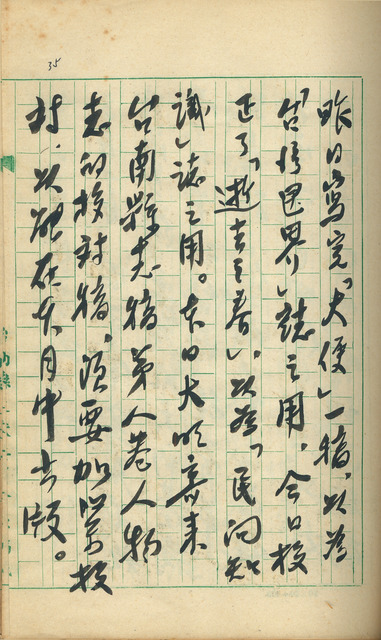 35
昨日寫完「大便」一稿，以為
「台界」誌之用，今日校
正了「逝去之春」，以為「民間知
識」誌之用。本日大來
台南縣志稿第八卷人物
志的校對稿，須要加緊校
對，以能在本月中出版。